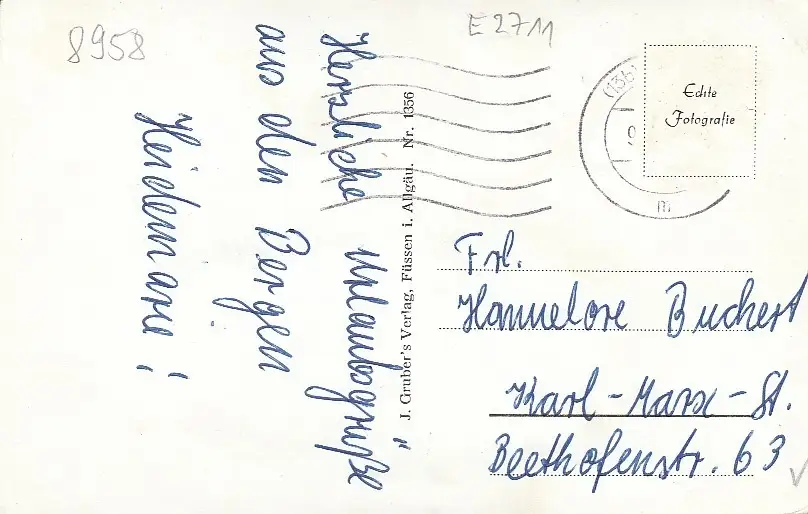 8958
E 2711
Herzliche Urlaubsgrüße
aus den Bergen
Heidemarie!
J. Gruber's Verlag, Füssen i. Allgäu. Nr. 1356
(136
Echte
Fotografie
m
Frl.
Hannelore Buchert
Karl-Marx-St.
Beethofenstr. 63